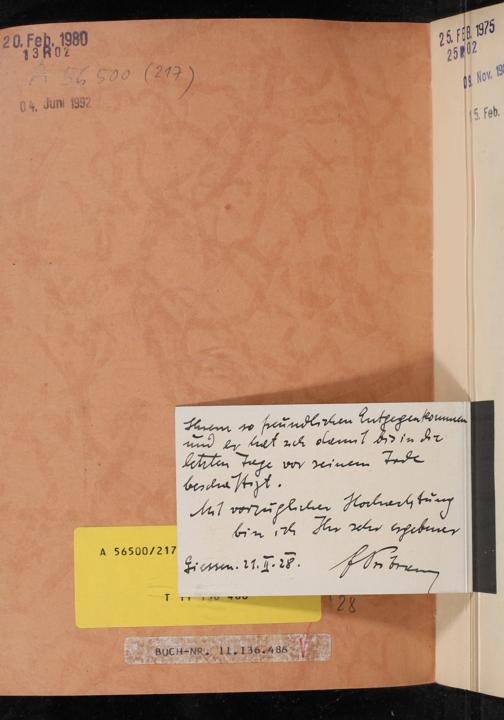 20. Feb. 1980
13R02
A 56 500 (217)
04. Juni 1992
25. FEB. 1975
25R02
Nov.
5. Feb.
Ihrem so freundlichen Entgegenkommen
und er hat sich damit bis in die
letzten Tage vor seinem Tode
beschäftigt.
Mit vorzüglicher Hochachtung
bin ich Ihr sehr ergebener
Giessen. 21. II. 28.
A 56500/217
T 11 136 486
'28
BUCH-NR. 11.136.486